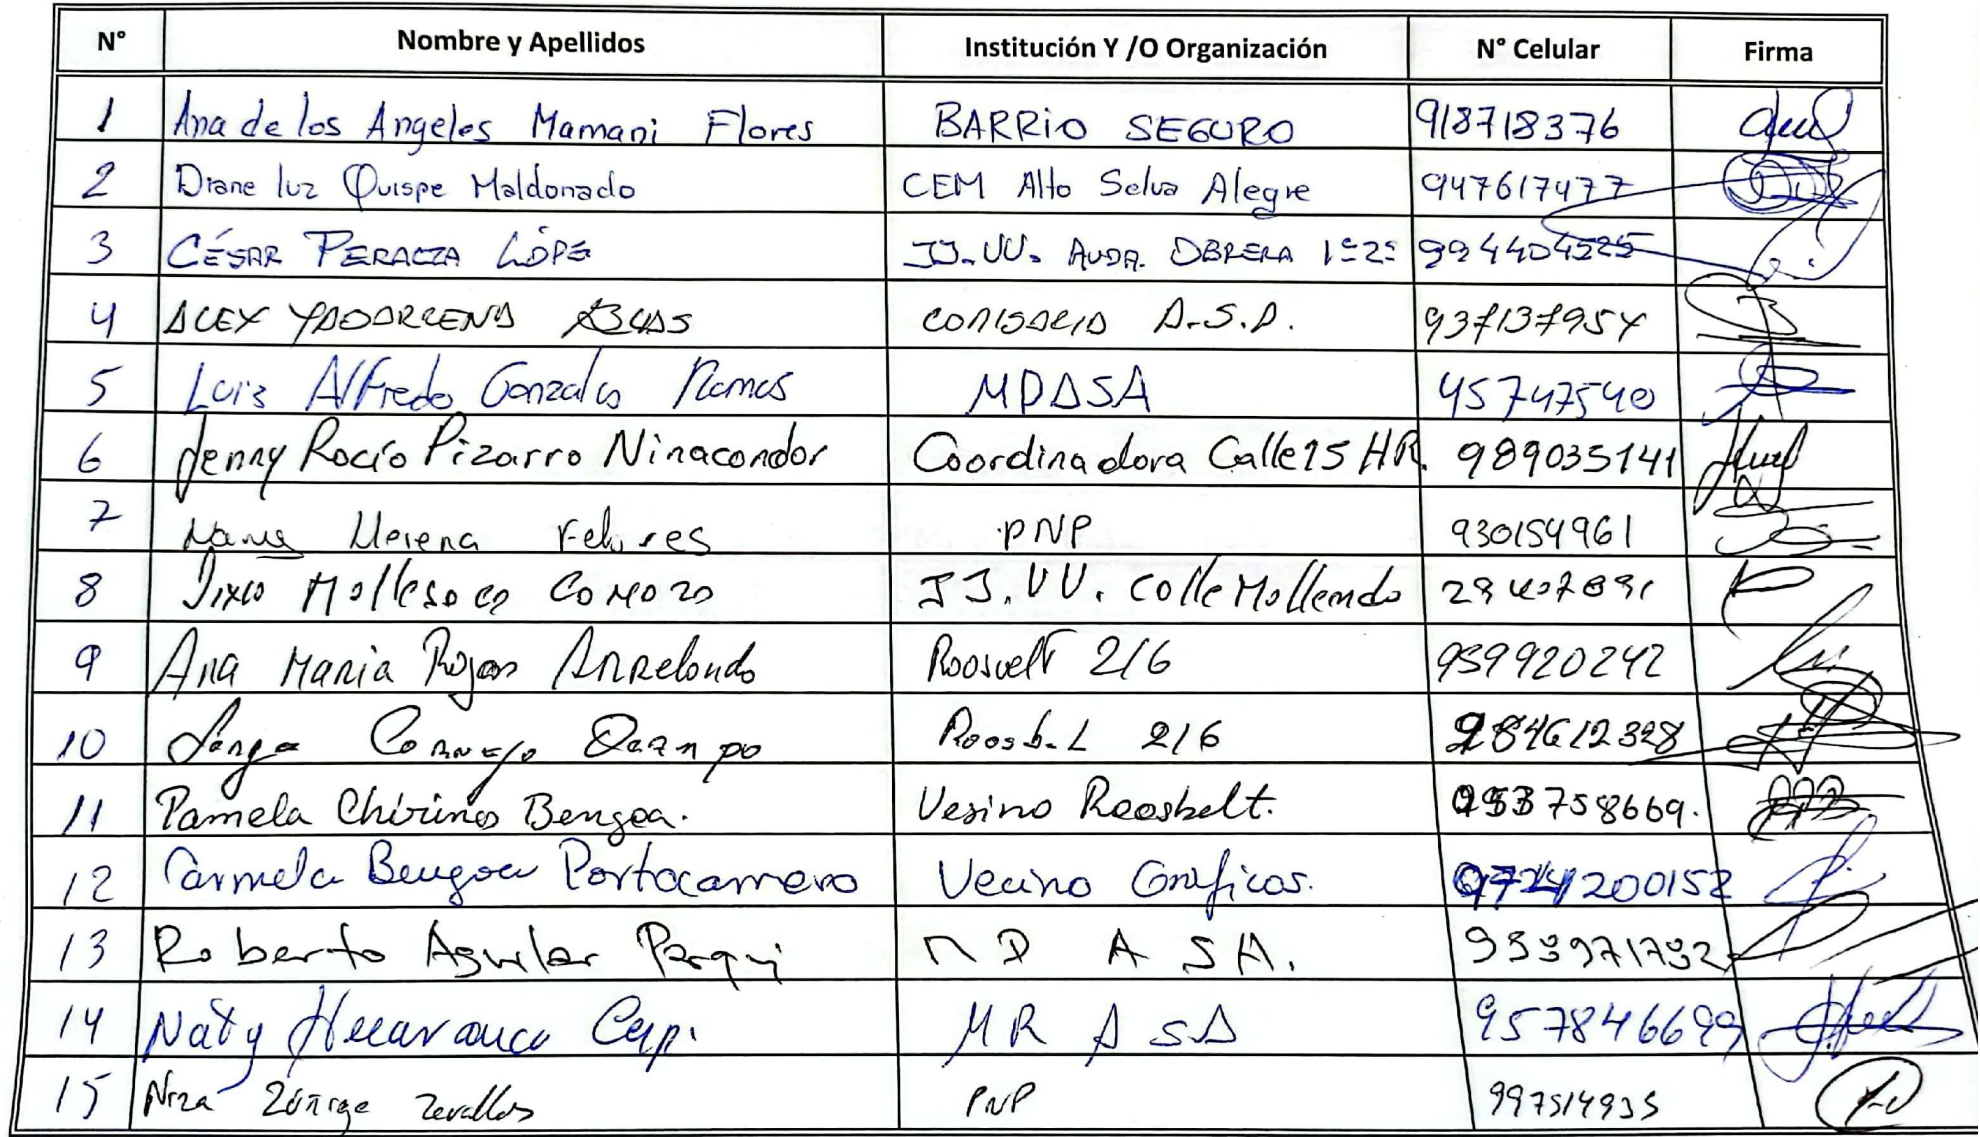 N° Nombre y Apellidos Institución Y /O Organización N° Celular Firma
1 Ana de los Angeles Mamani Flores BARRIO SEGURO 918718376
2 Diane luz Quispe Maldonado CEM Alto Selva Alegre 947617477
3 CÉSAR PERALTA LÓPE JJ.VV. AVDA. OBRERA 1º2º 994404525
4 ALEX A.S.A. 937137954
5 Luis Alfredo Gonzales Ramos MDASA 45747540
6 Jenny Rocío Pizarro Ninacondor Coordinadora Calle 15 HR. 989035141
7 Llerena PNP 930154961
8 JJ.VV. Calle Mollendo
9 Ana Maria Rojas Arredondo Roosvelt 216 959920242
10 Cornejo Ocampo 216 984612328
11 Pamela Chirinos Bengoa. Vesino Roosbelt. 953758669.
12 Carmela Bengoa Portocarrero Vecino Graficos.
13 Roberto Aguilar MD ASA. 959971792
14 Naty Huarauca MR ASA 957846699
15 Zúñiga Zevallos PNP 997514935